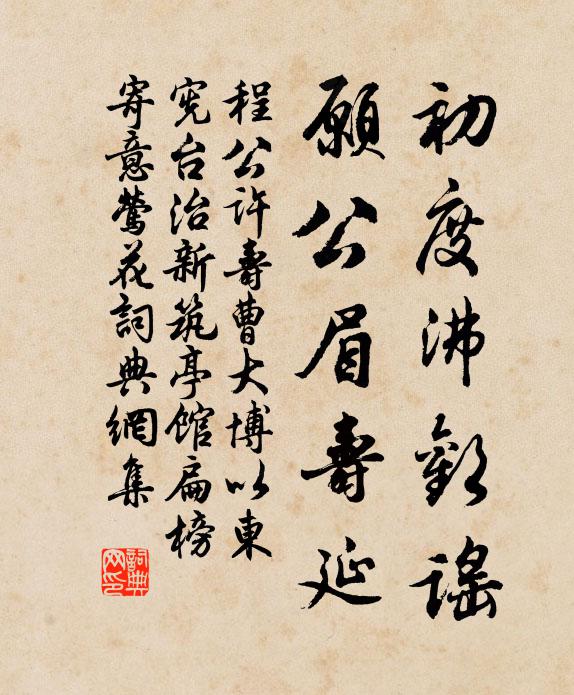 初度沸歡謠
願公眉壽延
程公許壽曹大博以東
宪台治新筑亭館扁榜
寄意鶯花詞典網集
詞典网印